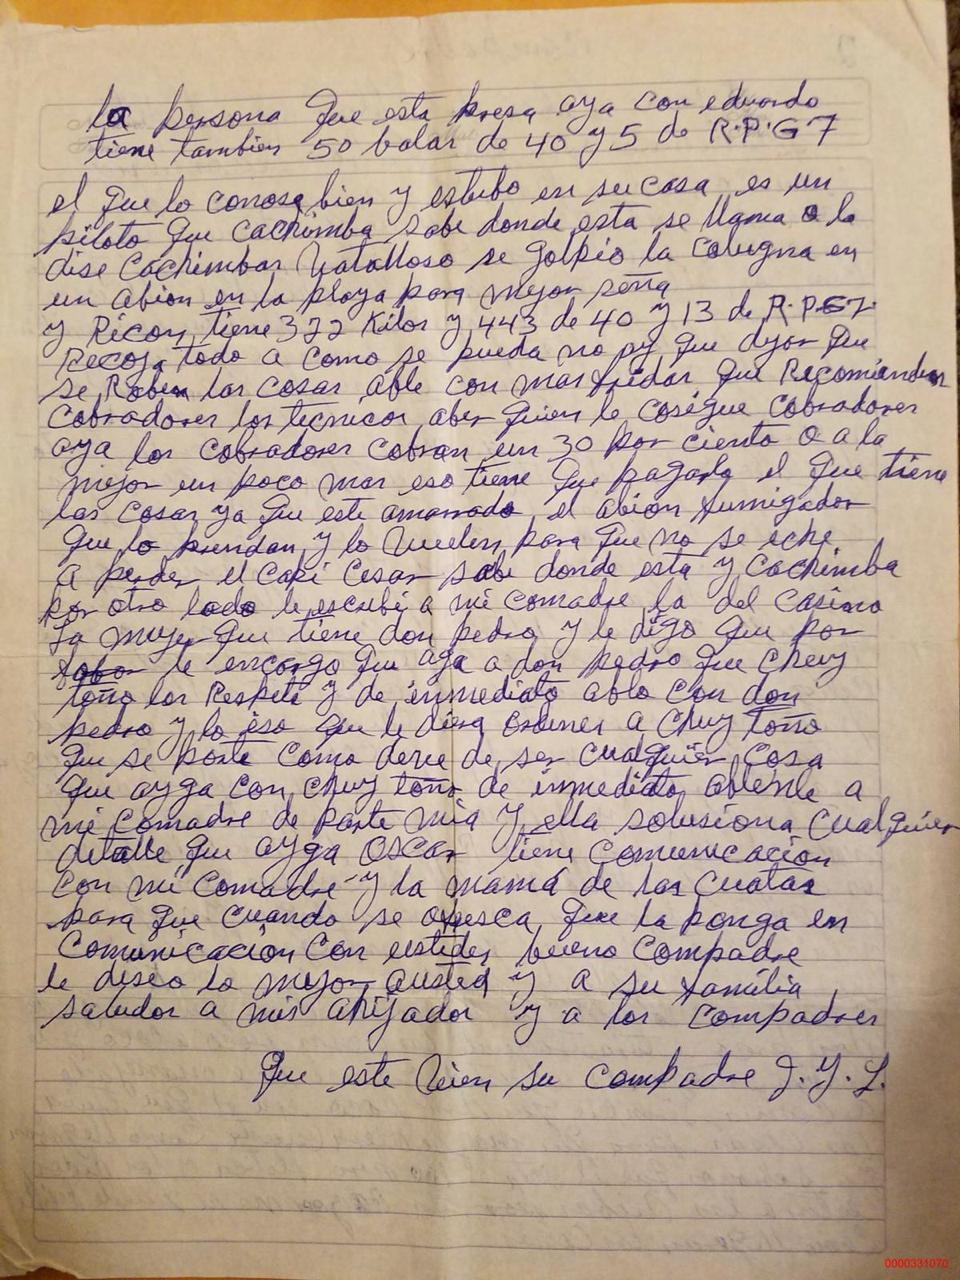 la persona que esta presa aya con eduardo
tiene tambien 50 balas de 40 y 5 de R.P.G 7
el que lo conose bien y estubo en su casa es un
piloto que cachimba sabe donde esta se llama o le
dise cachimbas se golpio la colugna en
un abion en la playa para mejor seña
y Ricon tiene 372 Kilos y 443 de 40 y 13 de R.P.G7
Recoja todo a como se pueda no que dejar que
se Roben las cosas able con mas fredas que Recomienden
cobradores los tecnicos aber quien le cosigue cobradores
aya los cobradores cobran un 30 por ciento o a la
mejor un poco mas eso tiene que pagarlo el que tiene
las cosas ya que este amarrado el abion fumigador
que lo prendan y lo vuelen para que no se eche
a perder el capi cesar sabe donde esta y cachimba
por otro lado le escribi a mi comadre la del casino
la mujer que tiene don pedro y le digo que por
le encargo que aga a don pedro que chuy
toño los Respete y de inmediato ablo con don
pedro y lo iso que le diera ordenes a chuy toño
que se porte como deve de ser cualquier cosa
que ayga con chuy toño de inmediato ablenle a
mi comadre de parte mia y ella solusiona cualquier
detalle que ayga oscar tiene comunicacion
con mi comadre y la mamá de las cuatas
para que cuando se ofresca que la ponga en
comunicacion con ustedes bueno compadre
le deseo lo mejor austed y a su familia
saludos a mis ahijados y a los compadres
que este bien su compadre J. G. L.
0000331070